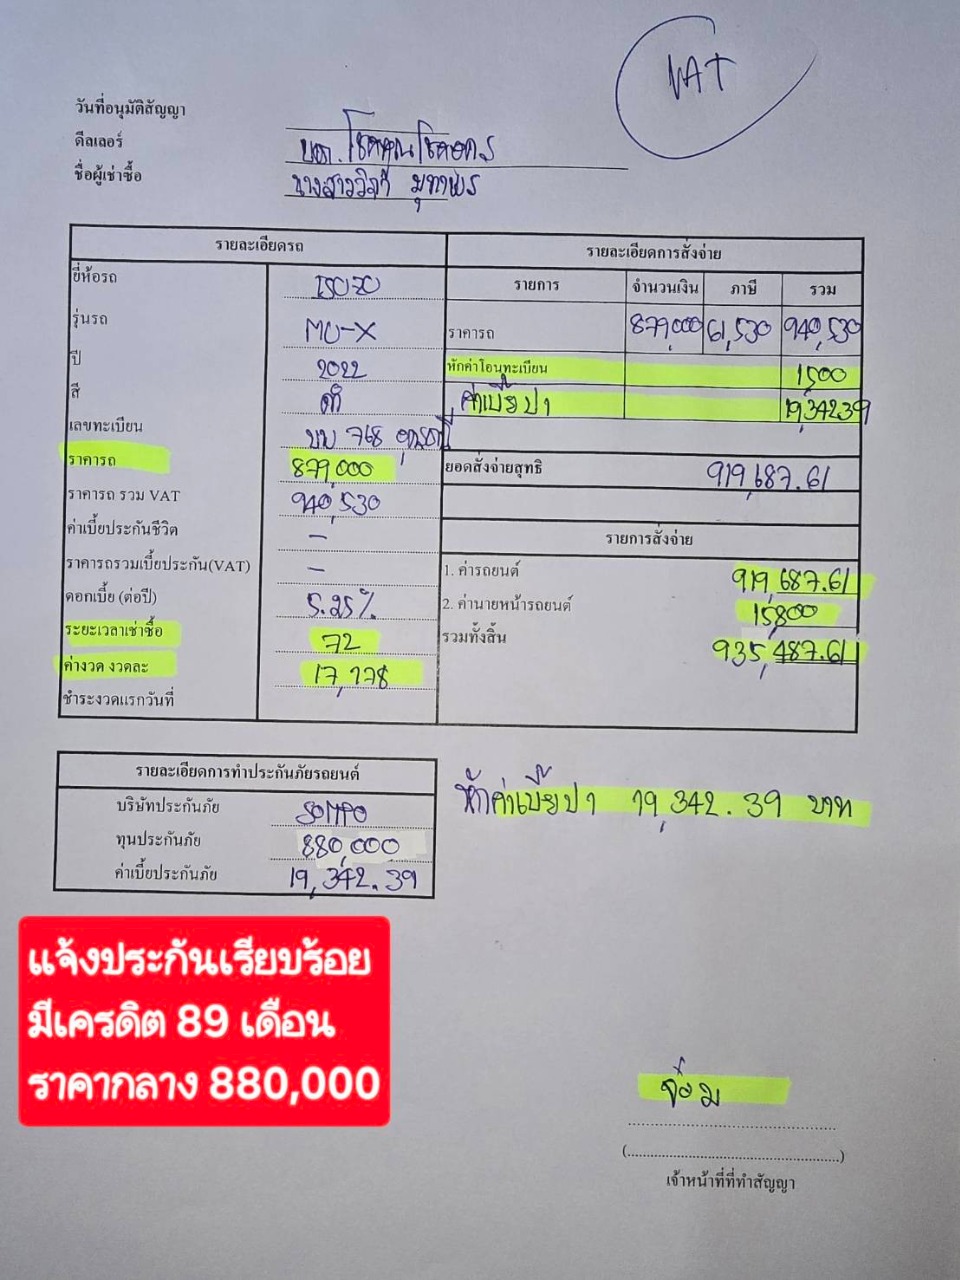 VAT
วันที่อนุมัติสัญญา
ดีลเลอร์ บจก. โชคคูณโชคอุดร
ชื่อผู้เช่าซื้อ นางสาววิภา
รายละเอียดรถ
ยี่ห้อรถ ISUZU
รุ่นรถ MU-X
ปี 2022
สี ดำ
เลขทะเบียน ขบ 768 อุดรธานี
ราคารถ 879,000
ราคารถ รวม VAT 940,530
ค่าเบี้ยประกันชีวิต -
ราคารถรวมเบี้ยประกัน(VAT) -
ดอกเบี้ย (ต่อปี) 5.25%
ระยะเวลาเช่าซื้อ 72
ค่างวด งวดละ 17,178
ชำระงวดแรกวันที่
รายละเอียดการสั่งจ่าย
รายการ จำนวนเงิน ภาษี รวม
ราคารถ 879,000 61,530 940,530
หักค่าโอนทะเบียน 1500
ค่าเบี้ย ป1 19,342.39
ยอดสั่งจ่ายสุทธิ 919,687.61
รายการสั่งจ่าย
1. ค่ารถยนต์ 919,687.61
2. ค่านายหน้ารถยนต์ 15,800
รวมทั้งสิ้น 935,487.61
รายละเอียดการทำประกันภัยรถยนต์
บริษัทประกันภัย SOMPO
ทุนประกันภัย 880,000
ค่าเบี้ยประกันภัย 19,342.39
หักค่าเบี้ย ป1 19,342.39 บาท
แจ้งประกันเรียบร้อย
มีเครดิต 89 เดือน
ราคากลาง 880,000
จ๋อม
(..........................................................)
เจ้าหน้าที่ที่ทำสัญญา